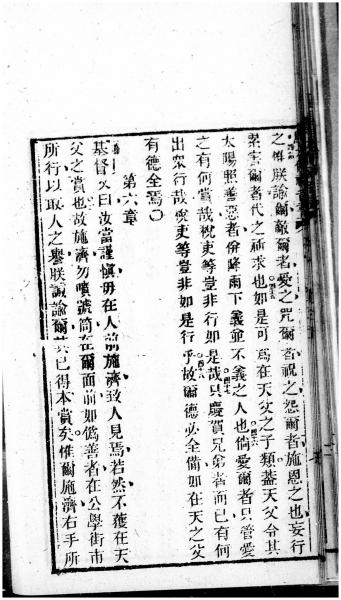 之惟朕諭爾敵爾者愛之咒爾者祝之怨爾者施恩之也妄行
累害爾者代之祈求也如是可為在天父之子類蓋天父令其
太陽照善惡者倂降雨下義並不義之人也倘愛爾者只管愛
之有何賞哉稅吏等豈非行如是哉只慶賀兄弟者而已有何
出眾行哉稅吏等豈非如是行乎故爾德必全備如在天之父
有德全焉〇
第六章
基督又曰汝當謹愼毋在人前施濟致人見焉若然不獲在天
父之賞也故施濟勿噴號筒在爾面前如僞善者在公學街市
所行以取人之譽朕誠諭爾其已得本賞矣惟爾施濟右手所